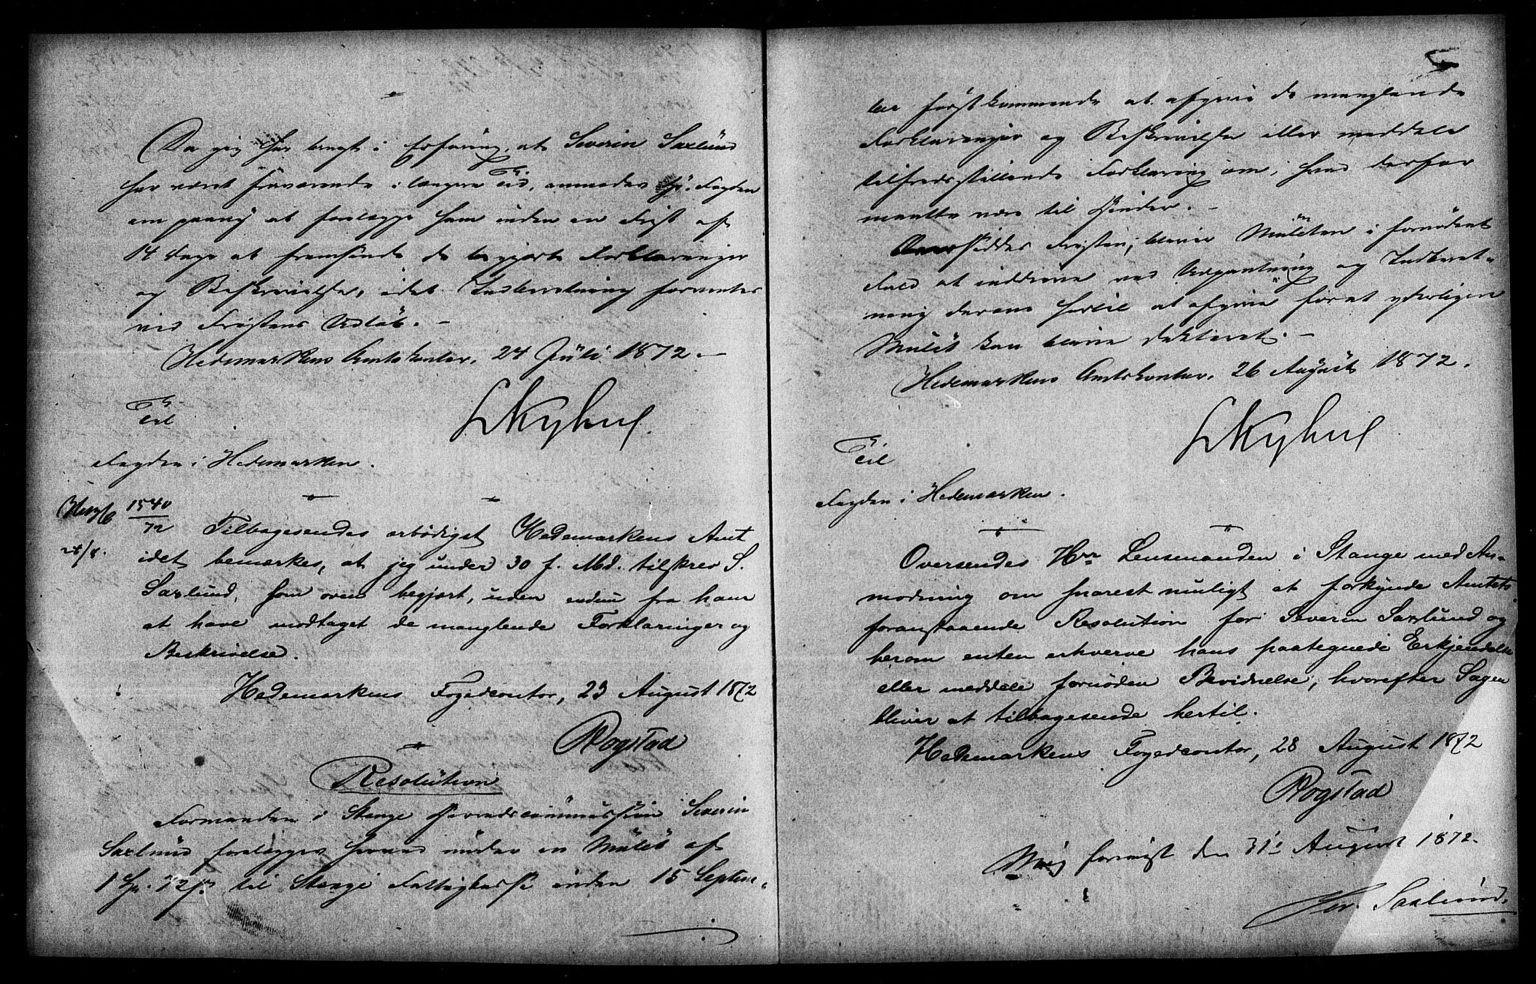 Da jeg har bragt i Erfaring, at Severin Saxlund
har været fraværende i længere Tid, anmodes Hr. Fogden
om paany at forelægge ham inden en Frist af
14 Dage at fremsende de begjærte Forklaringer
og Beskrivelse, idet Indberetning forventes
ved Fristens Udløb. —
Hedemarkens Amtskontor, 24 Juli 1872. —
Til
Fogden i Hedemarken.
1540
72
24/8.
Tilbagesendes ærbødigst Hedemarkens Amt
idet bemærkes, at jeg under 30 f. Md. tilskrev S.
Saxlund, som oven begjært, uden endnu fra ham
at have modtaget de manglende Forklaringer og
Beskrivelse.
Hedemarkens Fogedcontor, 23 August 1872
Rogstad
Resolution
Formanden i Stange Severin
Saxlund forelægges herved under en Mulct af
1 Sp. 72 ß til Stange Fattigkasse inden 15 Septem-
ber førstkommende at afgive de manglende
Forklaringer og Beskrivelse eller meddele
tilfredsstillende Forklaring om, hvad derfor
maatte være til Hinder. —
Oversiddes Fristen, bliver Mulcten i fornødent
Fald at inddrive ved Udpantning og Indberet-
ning derom hertil at afgive for at yderligere
Mulct kan blive dikteret. —
Hedemarkens Amtskontor, 26 August 1872.
Til
Fogden i Hedemarken.
Oversendes Hrr Lensmanden i Stange med An-
modning om snarest muligt at forkynde Amtets
foranstaaende Resolution for Severin Saxlund og
herom enten erhverve hans paategnede Erkjendelse
eller meddele fornøden Bevidnelse, hvorefter Sagen
bliver at tilbagesende hertil.
Hedemarkens Fogedcontor, 28 August 1872
Rogstad
Mig forevist den 31te August 1872.
Sev. Saxlund.